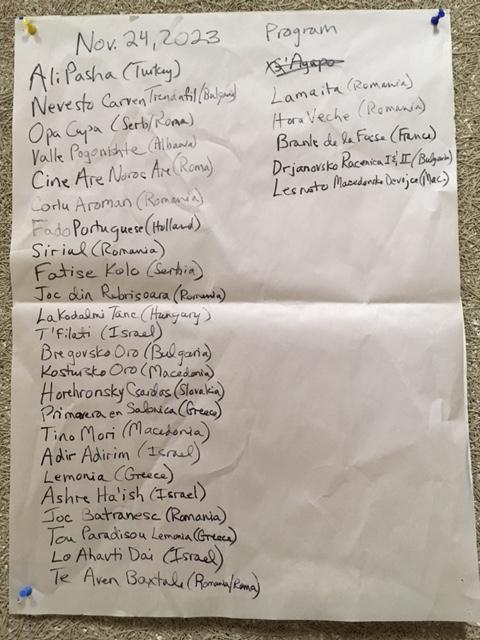 Nov. 24, 2023
Ali Pasha (Turkey)
Nevesto Carven Trendafil (Bulgaria)
Opa Cupa (Serb/Roma)
Valle Pogonishte (Albania)
Cine Are Noros Are (Roma)
Corlu Aroman (Romania)
Fado Portuguese (Holland)
Siriul (Romania)
Fatise Kolo (Serbia)
Joc din Rebrisoara (Romania)
Lakodalmi Tanc (Hungary)
T'filati (Israel)
Bregovsko Oro (Bulgaria)
Kostursko Oro (Macedonia)
Horehronsky Csardas (Slovakia)
Primavera en Salonica (Greece)
Tino Mori (Macedonia)
Adir Adirim (Israel)
Lemonia (Greece)
Ashre Ha'ish (Israel)
Joc Batranesc (Romania)
Tou Paradisou Lemonia (Greece)
Lo Ahavti Dai (Israel)
Te Aven Baxtale (Romania/Roma)
Program
S'Agapo
Lamaita (Romania)
Hora Veche (Romania)
Branle de la Fosse (France)
Drjanovsko Racenica I & II (Bulgaria)
Lesnoto Makedonsko Devojce (Mac.)